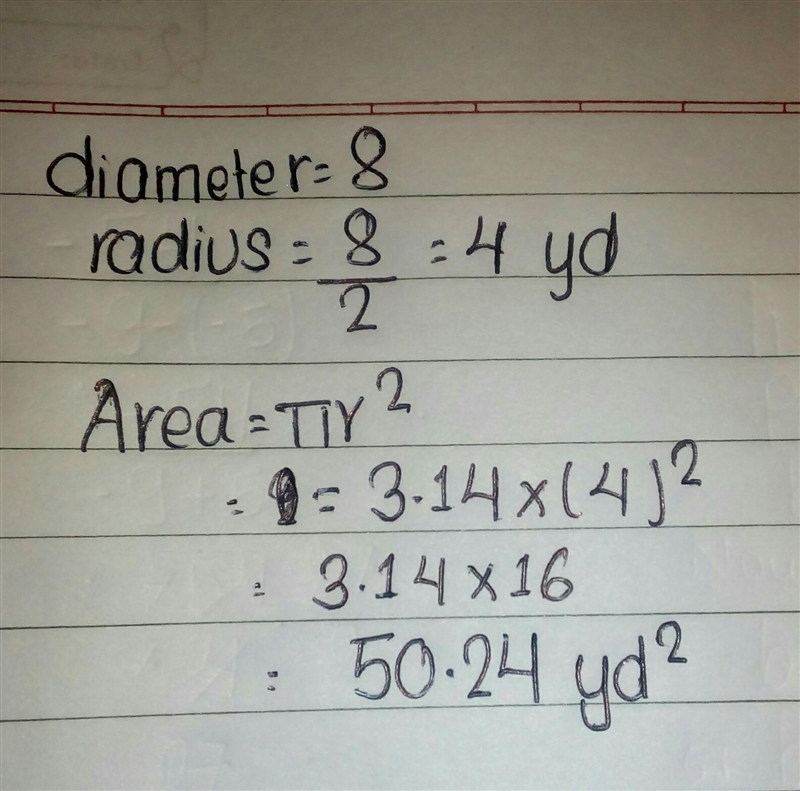 diameter = 8
radius = 8/2 = 4 yd
Area = πr²
= = 3.14 × (4)²
= 3.14 × 16
= 50.24 yd²